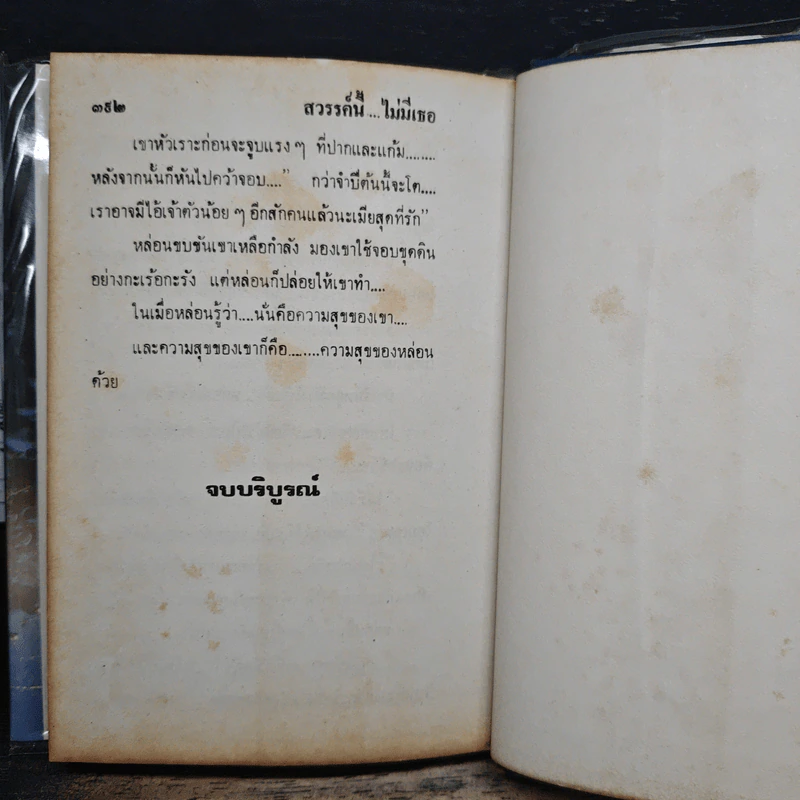 ๓๙๒ สวรรค์นี้...ไม่มีเธอ
เขาหัวเราะก่อนจะจูบแรง ๆ ที่ปากและแก้ม........
หลังจากนั้นก็หันไปคว้าจอบ....” กว่าจำปีต้นนี้จะโต....
เราอาจมีไอ้เจ้าตัวน้อย ๆ อีกสักคนแล้วนะเมียสุดที่รัก”
หล่อนขบขันเขาเหลือกำลัง มองเขาใช้จอบขุดดิน
อย่างกะเร้อกะรัง แต่หล่อนก็ปล่อยให้เขาทำ....
ในเมื่อหล่อนรู้ว่า....นั่นคือความสุขของเขา....
และความสุขของเขาก็คือ........ความสุขของหล่อน
ด้วย
จบบริบูรณ์